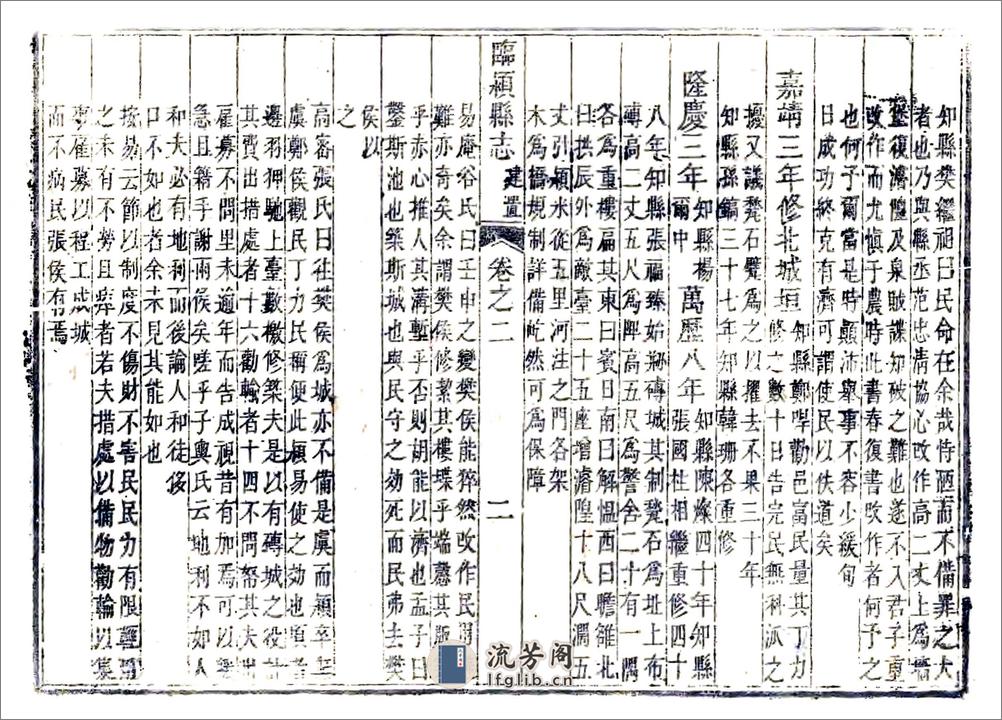 知縣樊繼祖曰民命在余哉恃陋而不備罪之大
者也乃與縣丞范忠清協心改作高二丈上爲牆
堡復濬隍及泉賊諜知破之難也遂不入君子重
改作而尤慎于農時此書春復書改作者何予之
也何予爾當是時顛沛舉事不容少緩旬
日成功終克有濟可謂使民以佚道矣
嘉靖三年修北城垣知縣鄭嘷勸邑富民量其丁力
修之數十日告完民無科派之
擾又議甃石甓爲之以擢去不果三十年
知縣孫鎬三十七年知縣韓珊各重修
隆慶三年知縣楊爾中萬曆八年知縣陳燦四十年知縣
張國柱相繼重修四十
八年知縣張福臻始剏磚城其制甃石爲址上布
磚高二丈五尺爲陴高五尺爲警舍二十有一隅
各爲重樓扁其東曰賓日南曰解慍西曰瞻雒北
曰拱辰外爲敵臺二十五座增濬隍十八尺濶五
丈引潁水從五里河注之門各架
木爲橋規制詳備屹然可爲保障
臨潁縣志 建置 卷之二 二
易庵谷氏曰壬申之變樊侯能猝然改作民謂
難亦奇矣余謂樊侯修絜其樓堞乎端懸其版
乎赤心推人其溝塹乎否則胡能以濟也孟子曰
鑿斯池也築斯城也與民守之効死而民弗去樊
侯以
之
高密張氏曰往樊侯爲城亦不備是虞而潁卒三
虞鄭侯觀民丁力民稱便此損易使之効也頃者
邊羽狎馳上臺數檄修築夫是以有磚城之役計
其費出措處者十六勸輸者十四不問帑其夫出
雇募不問里未逾年而告成視昔有加焉可以無
急且籍乎謝兩侯矣嗟乎子輿氏云地利不如人
和夫必有地利而後論人和徒侈
口不如也者余未見其能如也
按易云節以制度不傷財不害民民力有限
之未有不勞且瘁者若夫措處以備物勸輸以集
事雇募以程工成城
而不病民張侯有焉